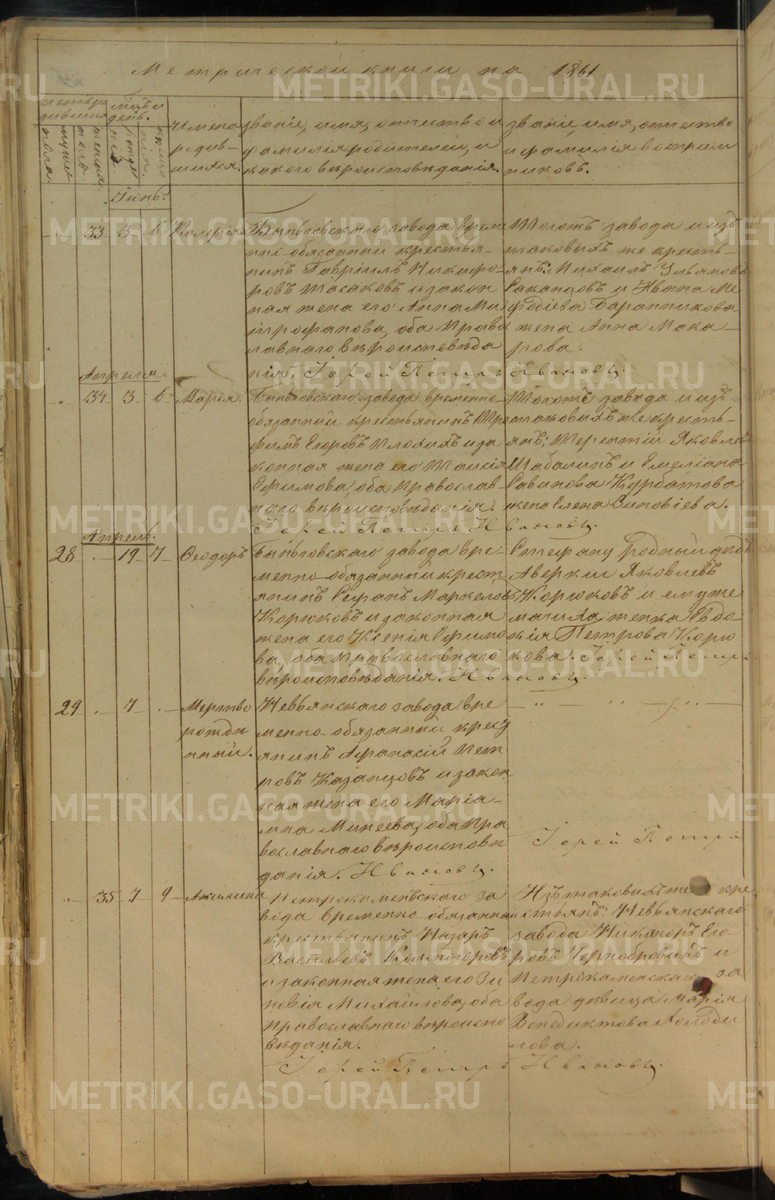 Метрической книги на 1861
Имена родившихся.
званіе, имя, отчество и фамилія родителей, и какого вѣроисповѣданія.
званіе, имя, отчество и фамилія воспріемниковъ.
33 5 6
Быньговскаго завода временно-обязанный крестья-
нинъ Гавріилъ Никифо-
ровъ и закон-
ная жена его Анна Ми-
трофанова, оба право-
славнаго вѣроисповѣда-
нія. Іерей Петръ Ивановъ.
Тогожъ завода и изъ
таковыхъ же кресть-
янъ: Михаилъ Ульяновъ
и Ивана Ме-
фодіева Баранникова
жена Анна Мака-
рова.
Апреля
34 3 6 Марія.
Быньговскаго завода временно
обязанный крестьянинъ Тро-
фимъ Егоровъ Плохихъ и за-
конная жена его Таисія
Ефимова, оба православ-
наго вѣроисповѣданія.
Іерей Петръ Ивановъ.
Тогожъ завода и изъ
таковыхъ же кресть-
янъ: Терентій Яковлевъ
Шабалинъ и Емеліана
Савинова Курбатова
жена Елена Зиновіева.
Апрель.
28 19 Ѳеодоръ
Быньговскаго завода вре-
менно-обязанный крест-
янинъ Стефанъ Маркеловъ
Корюковъ и законная
жена его Ксенія Ефимо-
ва, оба православнаго
вѣроисповѣданія. Ивановъ.
Стефану родный дядя
Аверкій Яковлевъ
Корюковъ и ему же
мачиха, женка Евдо-
кія Петрова Корю-
кова. Іерей Петръ
29 7 Мертво
рожден
ный.
Невьянскаго завода вре-
менно-обязанный крест-
янинъ Афанасій Пет-
ровъ Казанцовъ и закон-
ная жена его Маріа-
мна Минеева, оба пра-
вославнаго вѣроисповѣ-
данія. Ивановъ.
Іерей Петръ
35 7 9 Акилина
Петрокаменскаго за-
вода временно обязанный
крестьянинъ Назаръ
Васильевъ
и законная жена его Зи-
новія Михайлова, оба
православнаго вѣроиспо-
вѣданія.
Іерей Петръ Ивановъ.
Изъ таковыхъ же кре-
стьянъ: Невьянскаго
завода Никаноръ Его-
ровъ Чернобровинъ и
Петрокаменскаго за-
вода дѣвица Марія
Венедиктова Холоди-
лова.
METRIKI.GASO-URAL.RU